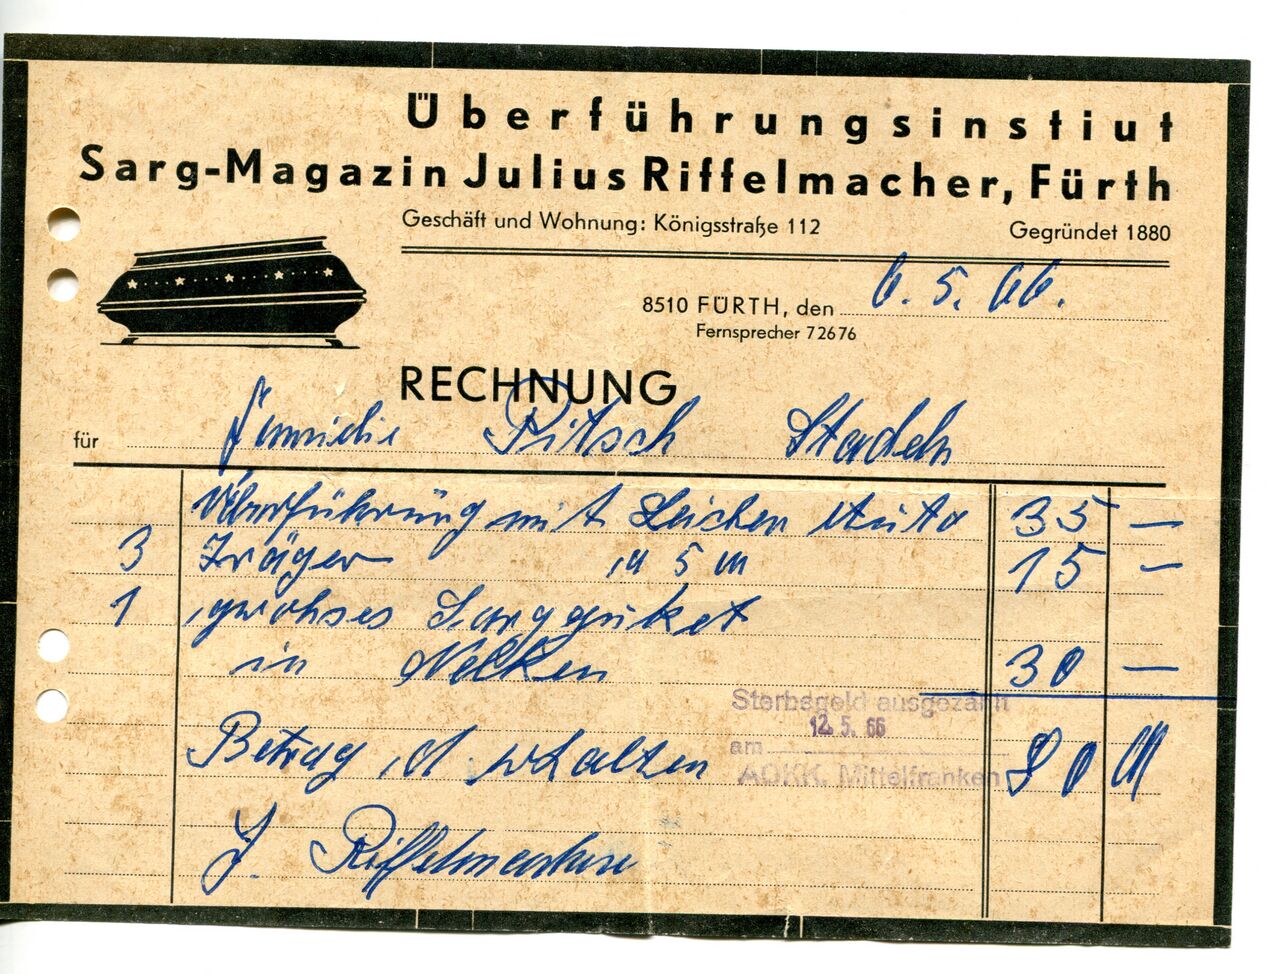 Überführungsinstiut
Sarg-Magazin Julius Riffelmacher, Fürth
Geschäft und Wohnung: Königsstraße 112 Gegründet 1880
8510 FÜRTH, den 6. 5. 66.
Fernsprecher 72676
RECHNUNG
für Familie Pitsch Stadeln
Überführung mit Leichen Auto 35 —
3 Träger a 5 M 15 —
1 in Nelken 30 —
Sterbegeld ausgezahlt
12. 5. 66
am
AOKK. Mittelfranken
Betrag erhalten 80 M
J. Riffelmacher